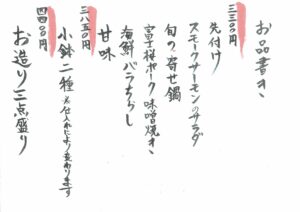 お品書き
三三〇〇円
先付け
スモークサーモンのサラダ
旬の寄せ鍋
富士桜ポーク味噌焼き
海鮮バラちらし
甘味
三八五〇円
小鉢二種 ※仕入れによって変わります
四四〇〇円
お造り三点盛り